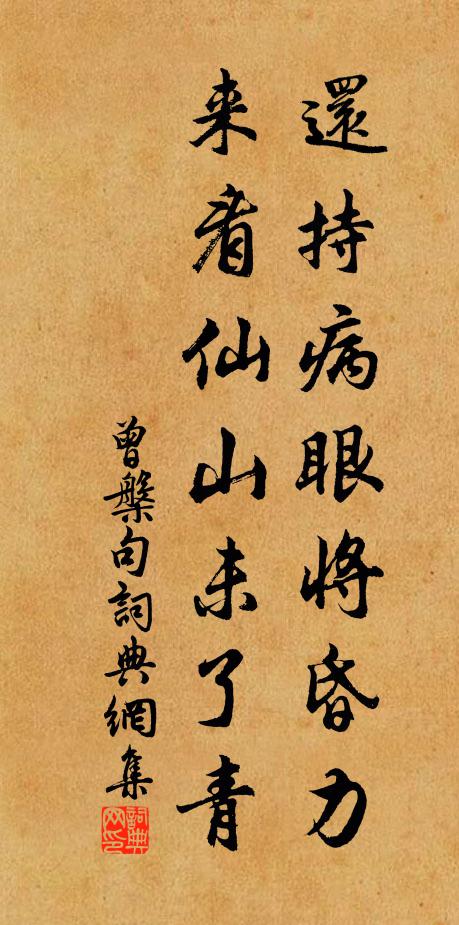 還持病眼將昏力
来看仙山未了青
曾槃句詞典網集
詞典网印